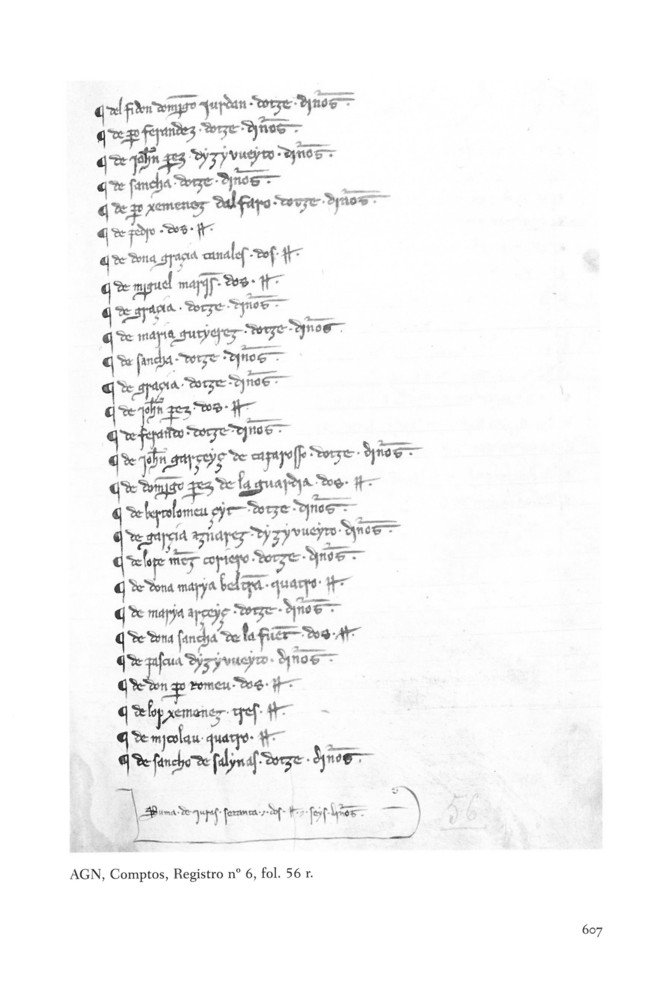 ¶ del fi don domīgo jurdan · dotze · dīnos ·
¶ de po ferandez · dotze · dīnos ·
¶ de johñ perez · dyzyvueyto · dīnos ·
¶ de sancha · dotze · dīnos ·
¶ de po xemenez dalfaro · dotze · dīnos ·
¶ de pedro · dos · ss ·
¶ de dona graçia canales · dos · ss ·
¶ de miguel · dos · ss ·
¶ de graçia · dotze · dīnos ·
¶ de maria gutyerez · dotze · dīnos ·
¶ de sancha · dotze · dīnos ·
¶ de graçia · dotze · dīnos ·
¶ de johñ perez · dos · ss ·
¶ de ferando · dotze · dīnos ·
¶ de johñ garçeyç de caparosso · dotze · dīnos ·
¶ de domīgo perez de la guardia · dos · ss ·
¶ de bertolomeu · dotze · dīnos ·
¶ de garçia aznarez · dyzyvueyto · dīnos ·
¶ de lope coriero · dotze · dīnos ·
¶ de dona marya beltrā · quatro · ss ·
¶ de marya arçeyç · dotze · dīnos ·
¶ de dona sancha de la fuēt · dos · ss ·
¶ de pascua dyzyvueyto · dīnos ·
¶ de don po romeu · dos · ss ·
¶ de lop xemenez · tres · ss ·
¶ de micolau · quatro · ss ·
¶ de sancho de salynas · dotze · dīnos ·
Suma · de juras · soranta · dos · ss · seys · dīnos ·
56
AGN, Comptos, Registro nº 6, fol. 56 r.
607